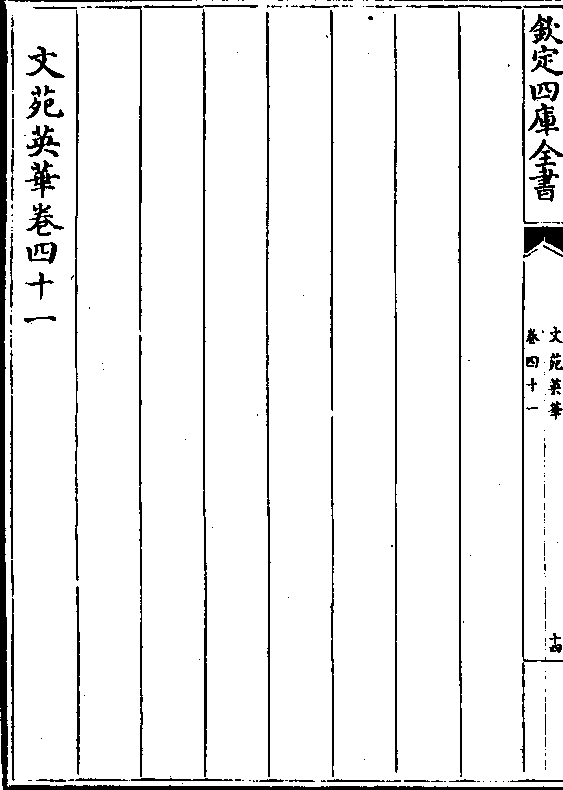 欽定四庫全書
文苑英華
卷四十一
十四
文苑英華卷四十一